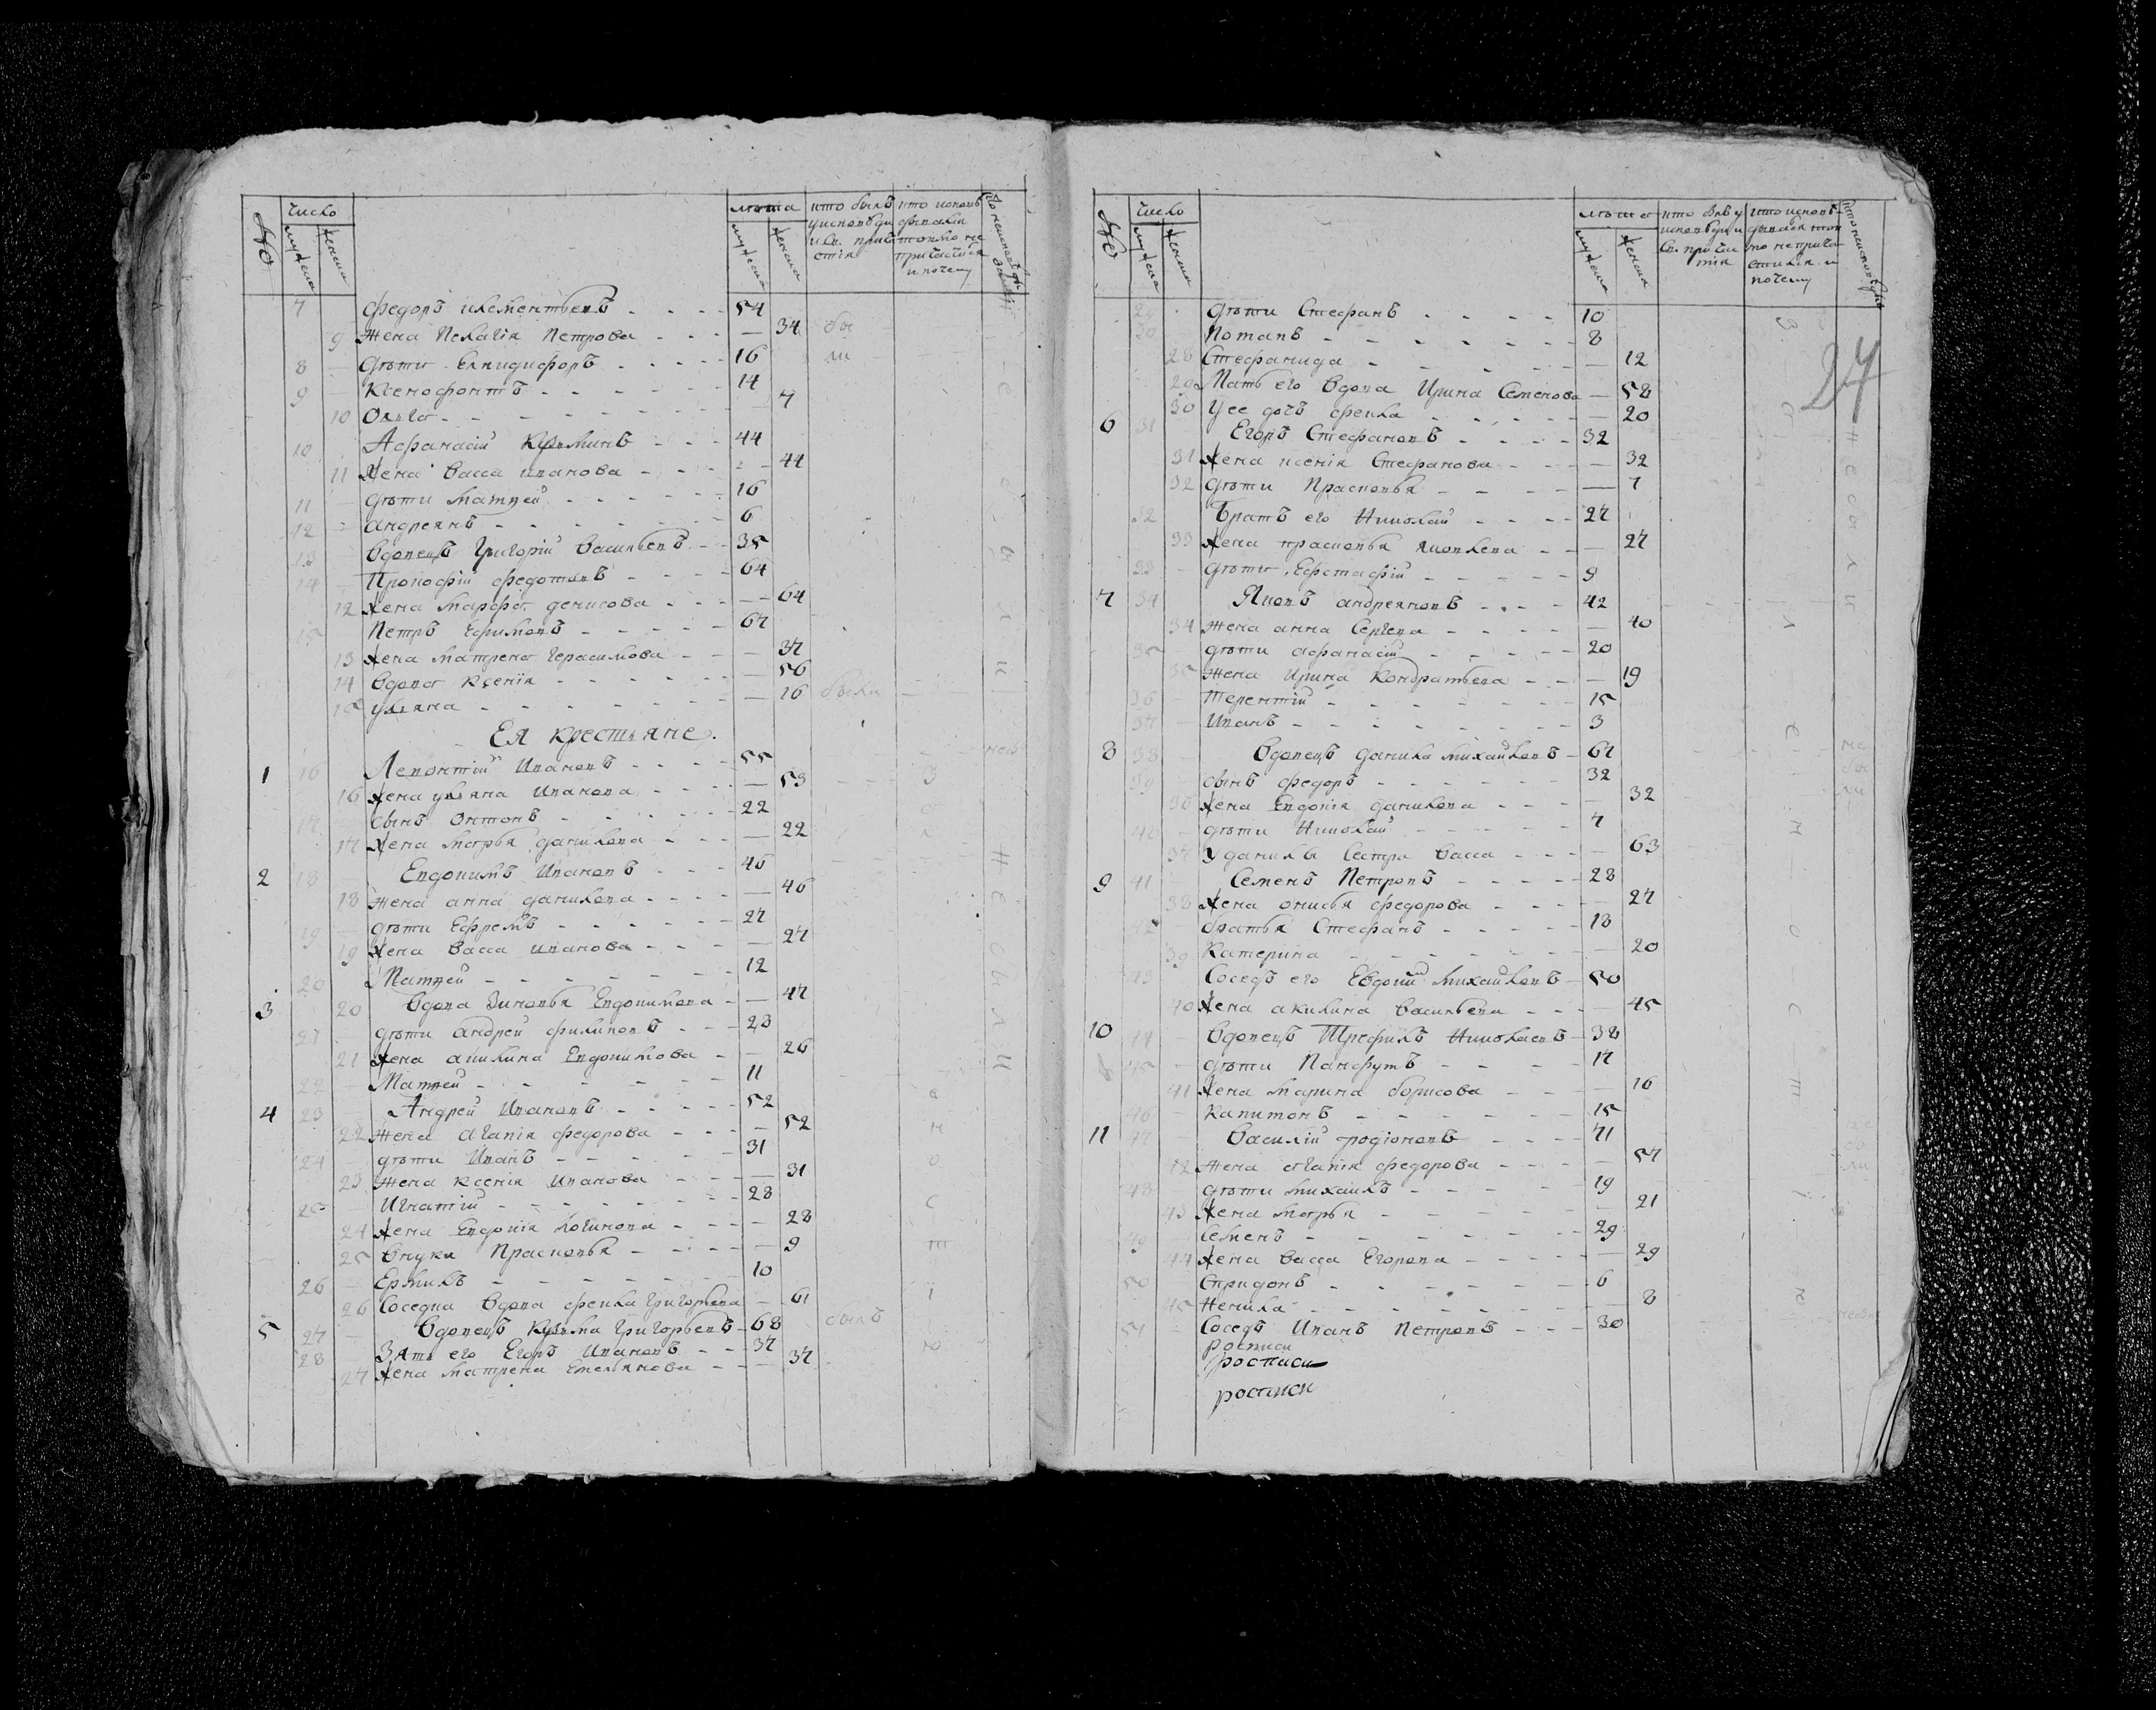 № число лѣта кто былъ у исповѣди и св. причастія кто исповѣдывался только не причастился и почему
мужеска женска мужеска женска
7 Федоръ Клементьевъ - - - - 54
9 Жена Пелагія Петрова - - - — 34 бы
8 дѣти Елпидифоръ - - - - 16 ли
9 Ксенофонтъ - - - - - - 14
10 Олга - - - - - - - 7
10 Афанасій Кузминъ - - - 44
11 Жена Васса Иванова - - - - 44
11 дѣти Матвей - - - - - - 16
12 Андреянъ - - - - - - - 6
13 Вдовецъ Григорій Васильевъ - - 35
14 Прокофій Федотовъ - - - - 64
12 Жена Марфа Денисова - - - — 64
15 Петръ Ефимовъ - - - - - 67
13 Жена Матрена Герасимова - - — 37
14 Вдова Ксенія - - - - - - — 56
15 Ульяна - - - - - - - — 16 были
Ея крестьяне.
1 16 Леонтій Ивановъ - - - - 55
16 Жена Ульяна Иванова - - - - — 53
17 сынъ Антонъ - - - - - - 22
17 Жена Марья Данилова - - - — 22
2 18 Евдокимъ Ивановъ - - - 46
18 Жена Анна Данилова - - - - — 46
19 дѣти Ефремъ - - - - - - 27
19 Жена Васса Иванова - - - — 27
20 Матвей - - - - - - - 12
3 20 Вдова Зиновья Евдокимова - — 47
21 дѣти Андрей Филиповъ - - - 28
21 Жена Акилина Евдокимова - — 26
22 Матвей - - - - - - - 11
4 23 Андрей Ивановъ - - - - - 52
22 Жена Агапія Федорова - - - — 52
24 дѣти Иванъ - - - - - - 31
23 Жена Ксенія Иванова - - - — 31
25 Игнатій - - - - - - - - 28
24 Жена Евдокія Логинова - - - — 28
25 внука Прасковья - - - - — 9
26 Ермилъ - - - - - - - 10
26 Соседка вдова Фекла Григорьева — 61
5 27 Вдовецъ Кузьма Григорьевъ - 68 былъ
28 Зять его Егоръ Ивановъ - - 37
27 Жена Матрена Емельянова - - — 37
№ число лѣта
мужеска женска мужеска женска
29 дѣти Стефанъ - - - - - 10
24
30 Потапъ - - - - - - - 8
28 Стефанида - - - - - - — 12
29 Мать его вдова Ирина Семенова — 58
30 У ее дочь Фекла - - - - - — 20
6 31 Егоръ Стефановъ - - - - 32
31 Жена Ксенія Стефанова - - - — 32
32 дѣти Прасковья - - - - — 7
32 Братъ его Николай - - - - 27
33 Жена Прасковья Яковлева - - — 27
33 дѣти Ефстафій - - - - - 9
7 34 Яковъ Андреяновъ - - - - 42
34 Жена Анна Сергева - - - - — 40
35 дѣти Афанасій - - - - - 20
35 Жена Ирина Кондратьева - - — 19
36 Терентій - - - - - - 15
37 Иванъ - - - - - - - - 3
8 38 Вдовецъ Данила Михайловъ - 67
39 сынъ Федоръ - - - - - - 32
36 Жена Евдокія Данилова - - - — 32
40 дѣти Николай - - - - - 7
37 У Данилы сестра Васса - - - — 63
9 41 Семенъ Петровъ - - - - - 28
38 Жена Анисья Федорова - - - - — 27
42 братья Стефанъ - - - - - 18
39 Катерина - - - - - - — 20
43 Соседъ его Евдокий Михайловъ - 50
40 Жена Акилина Васильева - - - — 45
10 44 Вдовецъ Трефилъ Николаевъ - 38
45 дѣти Панфутъ - - - - 17
41 Жена Марина Борисова - - - — 16
46 Капитонъ - - - - - - 15
11 47 Василій Родіоновъ - - - 71
42 Жена Агапія Федорова - - - - — 57
48 дѣти Михаилъ - - - - - 19
43 Жена Марья - - - - - - — 21
49 Семенъ - - - - - - - 29
44 Жена Васса Егорова - - - - — 29
50 Спридонъ - - - - - - - 6
45 Ненила - - - - - - - — 8
51 Соседъ Иванъ Петровъ - - - 30
росписи
росписи
росписи